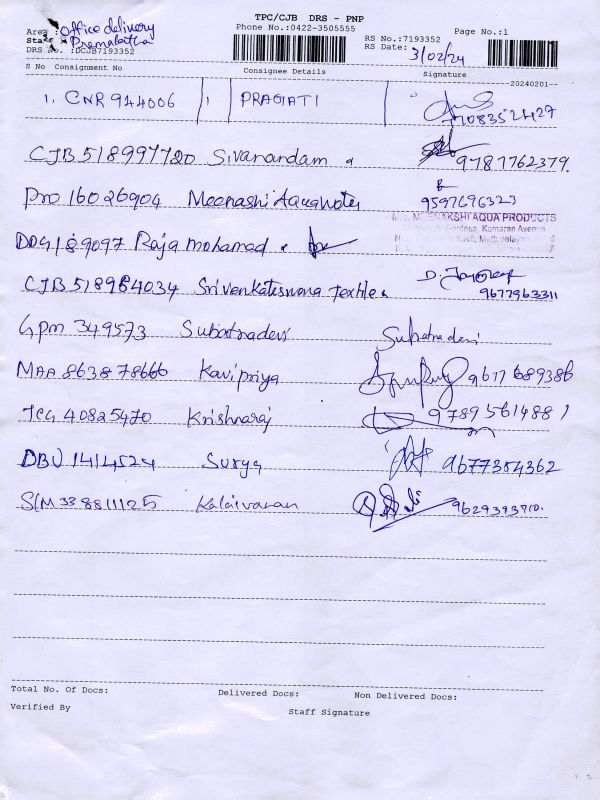 TPC/CJB DRS - PNP
Phone No.:0422-3505555
Area : Office delivery
Staff : Premalatha
DRS No. :DCJB7193352
RS No.:7193352
RS Date: 3/02/24
Page No.:1
S No Consignment No Consignee Details Signature
20240201
1. CNR 944006 1 PRAGATI
CJB 518997720 Sivanandam 9787762379.
Pro 16026904 9597696323
MEENAKSHI AQUA PRODUCTS
Gardens, Kumaran Avenue
DDG 189097 Raja Mohamad
CJB 518964034 Srivenkateswara Textiles 9677963311
Gpm 349573 Subatradevi Subatradevi
MAA 863878666 Kavipriya 9677689386
TCG 40825470 Krishnaraj 9789561488 1
DBU 1414524 Surya 9677384362
SLM 338811125 Kalaivanan 9629393910.
Total No. Of Docs: Delivered Docs: Non Delivered Docs:
Verified By Staff Signature